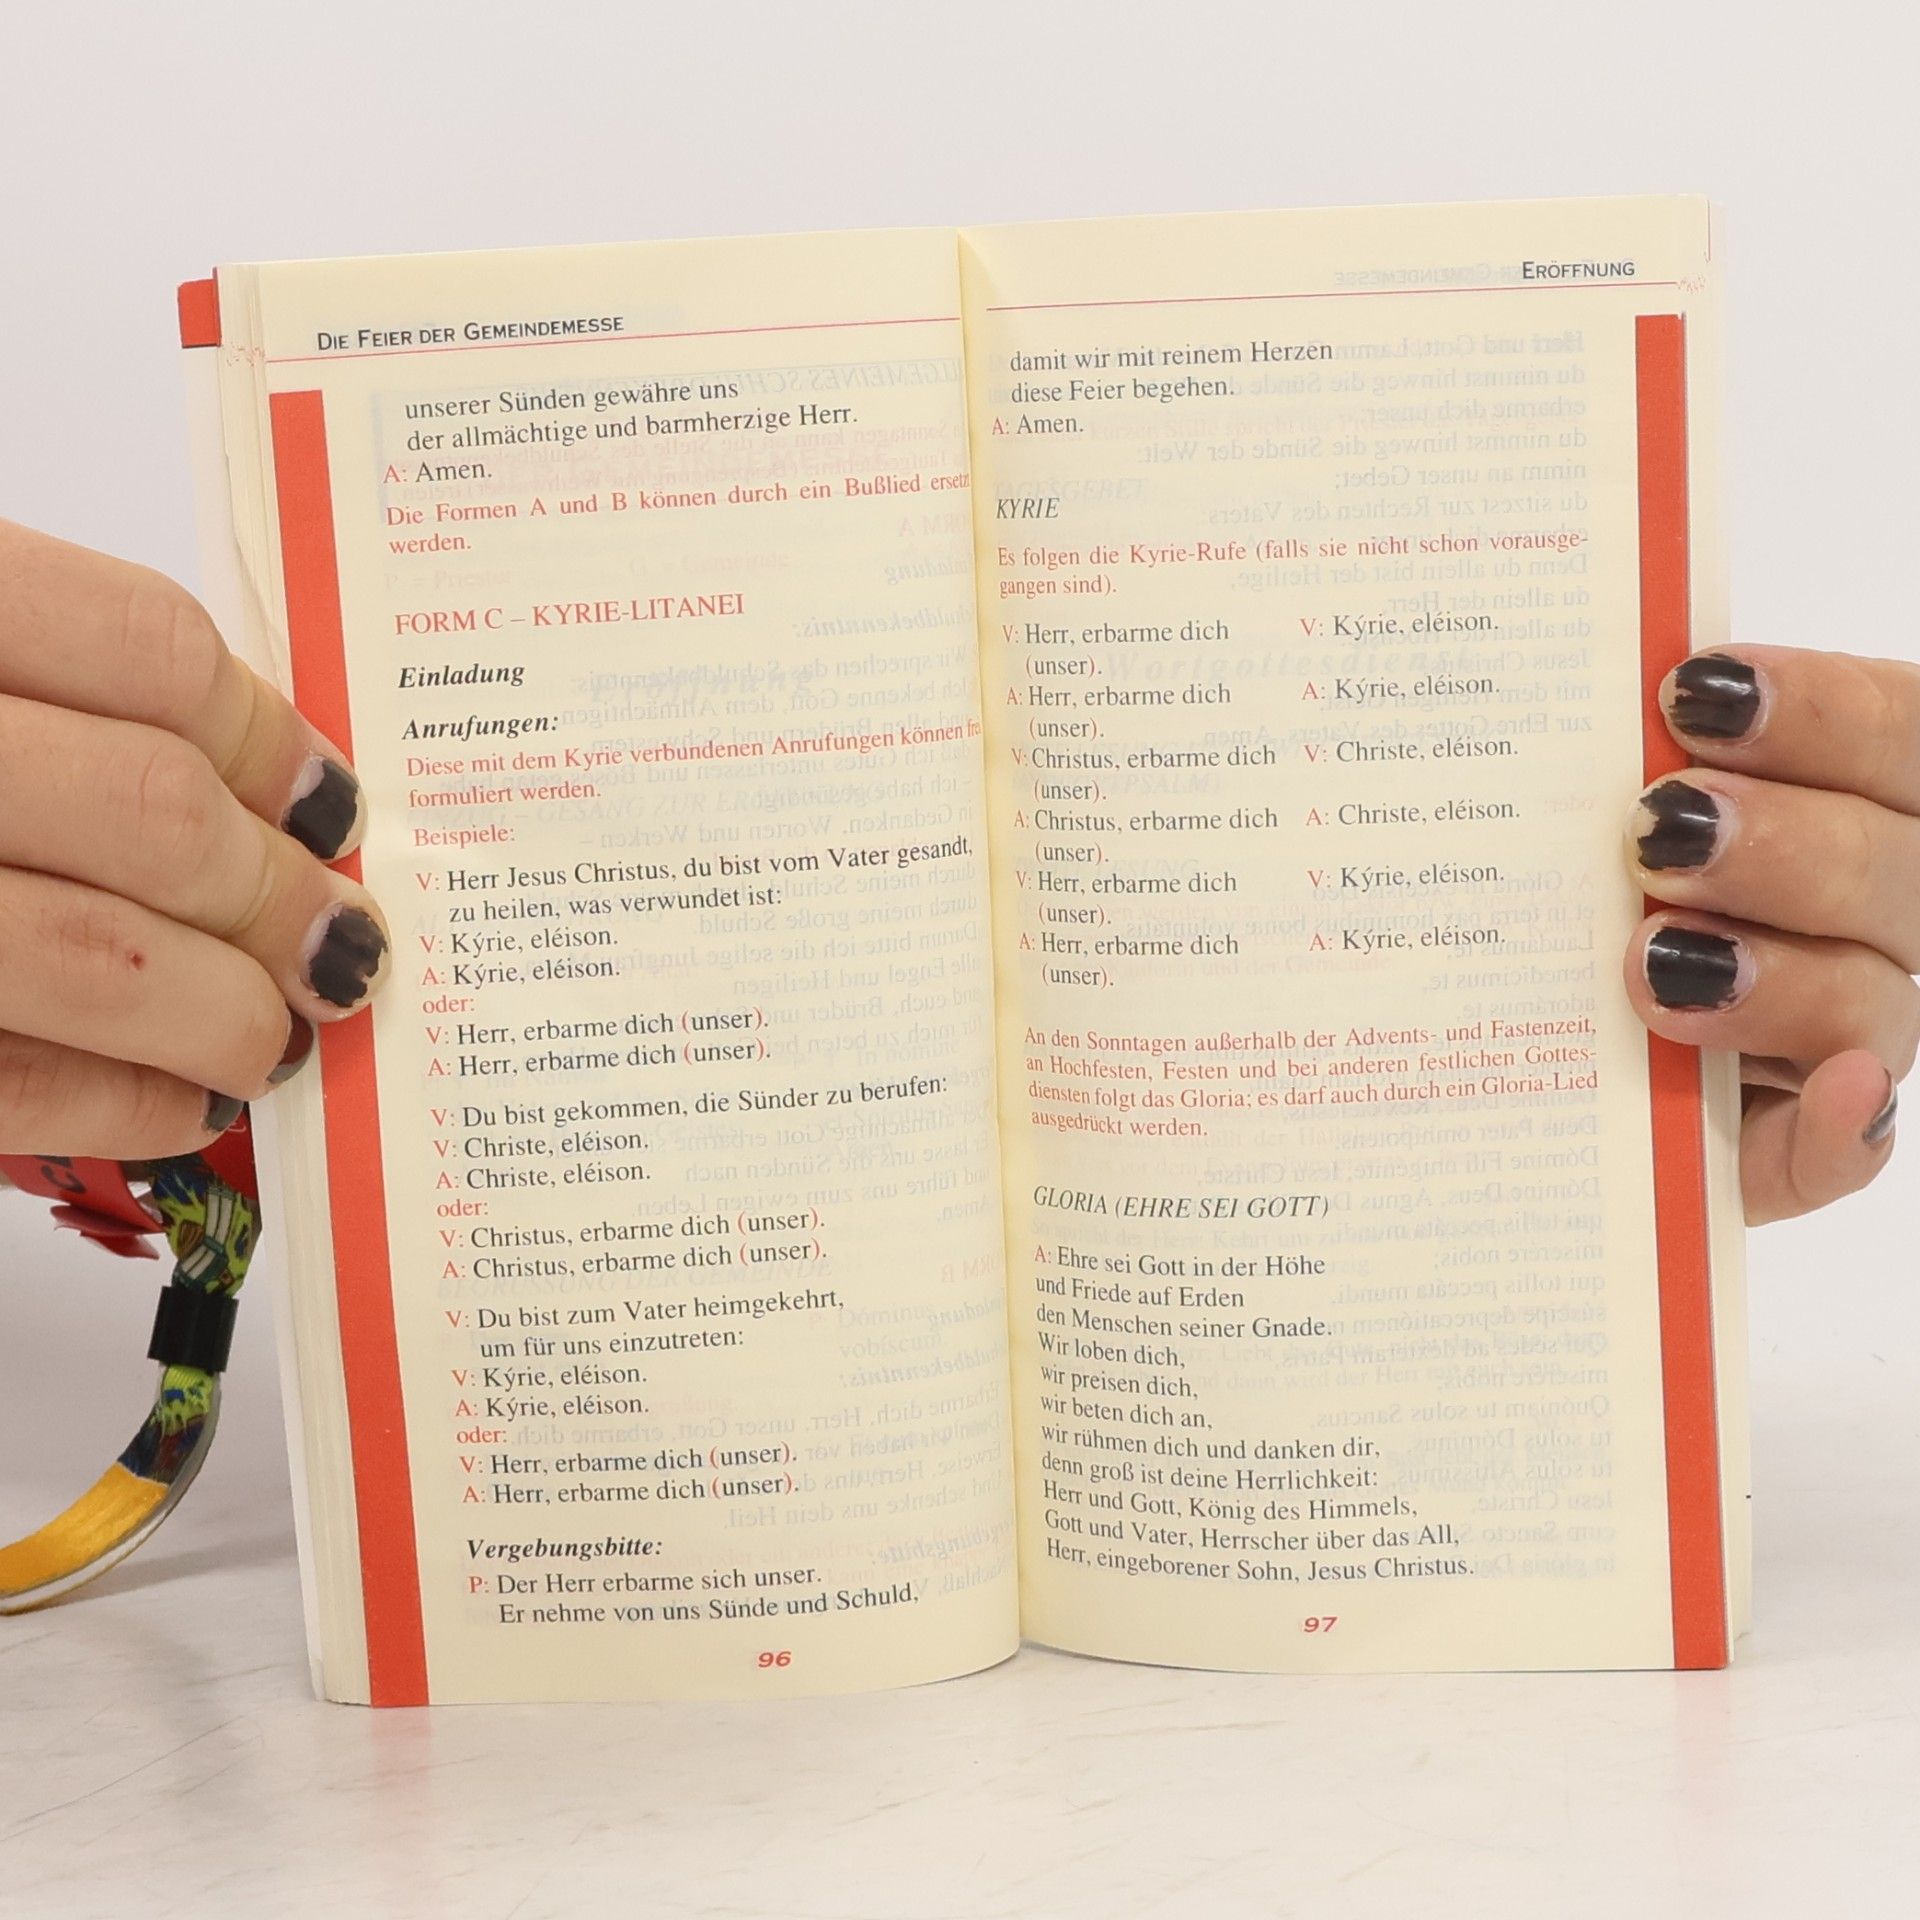 DIE FEIER DER GEMEINDEMESSE
unserer Sünden gewähre uns
der allmächtige und barmherzige Herr.
A: Amen.
Die Formen A und B können durch ein Bußlied ersetzt
werden.
FORM C – KYRIE-LITANEI
Einladung
Anrufungen:
Diese mit dem Kyrie verbundenen Anrufungen können frei
formuliert werden.
Beispiele:
V: Herr Jesus Christus, du bist vom Vater gesandt,
zu heilen, was verwundet ist:
V: Kýrie, eléison.
A: Kýrie, eléison.
oder:
V: Herr, erbarme dich (unser).
A: Herr, erbarme dich (unser).
V: Du bist gekommen, die Sünder zu berufen:
V: Christe, eléison.
A: Christe, eléison.
oder:
V: Christus, erbarme dich (unser).
A: Christus, erbarme dich (unser).
V: Du bist zum Vater heimgekehrt,
um für uns einzutreten:
V: Kýrie, eléison.
A: Kýrie, eléison.
oder:
V: Herr, erbarme dich (unser).
A: Herr, erbarme dich (unser).
Vergebungsbitte:
P: Der Herr erbarme sich unser.
Er nehme von uns Sünde und Schuld,
96
ERÖFFNUNG
damit wir mit reinem Herzen
diese Feier begehen.
A: Amen.
KYRIE
Es folgen die Kyrie-Rufe (falls sie nicht schon vorausge-
gangen sind).
V: Herr, erbarme dich V: Kýrie, eléison.
(unser).
A: Herr, erbarme dich A: Kýrie, eléison.
(unser).
V: Christus, erbarme dich V: Christe, eléison.
(unser).
A: Christus, erbarme dich A: Christe, eléison.
(unser).
V: Herr, erbarme dich V: Kýrie, eléison.
(unser).
A: Herr, erbarme dich A: Kýrie, eléison.
(unser).
An den Sonntagen außerhalb der Advents- und Fastenzeit,
an Hochfesten, Festen und bei anderen festlichen Gottes-
diensten folgt das Gloria; es darf auch durch ein Gloria-Lied
ausgedrückt werden.
GLORIA (EHRE SEI GOTT)
A: Ehre sei Gott in der Höhe
und Friede auf Erden
den Menschen seiner Gnade.
Wir loben dich,
wir preisen dich,
wir beten dich an,
wir rühmen dich und danken dir,
denn groß ist deine Herrlichkeit:
Herr und Gott, König des Himmels,
Gott und Vater, Herrscher über das All,
Herr, eingeborener Sohn, Jesus Christus.
97